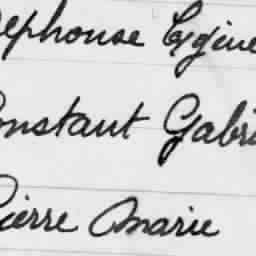 ephouse Egine
onstant Gabri
Pierre Marie